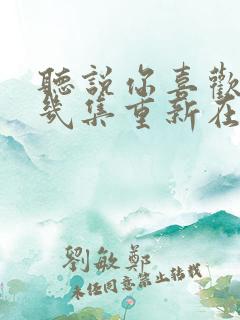 聽說你喜歡
幾集重新在
劉敏鄭
未經同意禁止轉載